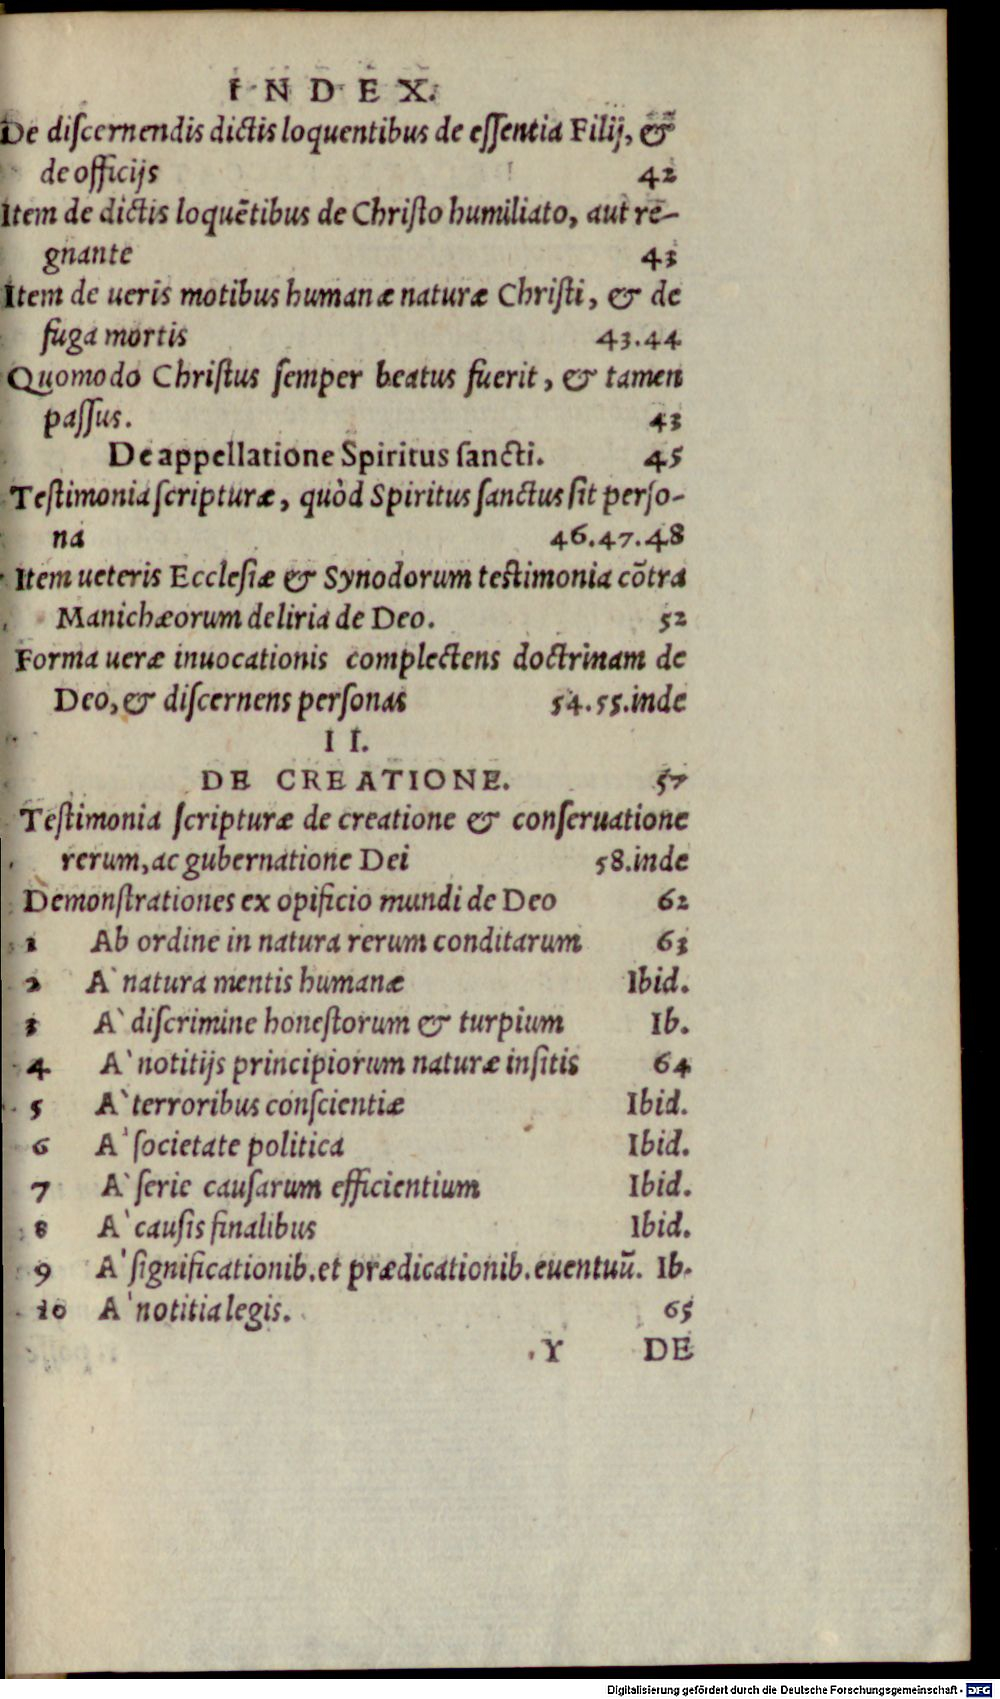 INDEX.
De discernendis dictis loquentibus de essentia Filij, &
de officijs 42
Item de dictis loquētibus de Christo humiliato, aut re-
gnante 43
Item de ueris motibus humanæ naturæ Christi, & de
fuga mortis 43.44
Quomodo Christus semper beatus fuerit, & tamen
passus. 43
De appellatione Spiritus sancti. 45
Testimonia scripturæ, quòd Spiritus sanctus sit perso-
na 46.47.48
Item ueteris Ecclesiæ & Synodorum testimonia cōtra
Manichæorum deliria de Deo. 52
Forma ueræ inuocationis complectens doctrinam de
Deo, & discernens personas 54.55.inde
II.
DE CREATIONE. 57
Testimonia scripturæ de creatione & conseruatione
rerum, ac gubernatione Dei 58.inde
Demonstrationes ex opificio mundi de Deo 62
1 Ab ordine in natura rerum conditarum 63
2 A` natura mentis humanæ Ibid.
3 A` discrimine honestorum & turpium Ib.
4 A` notitijs principiorum naturæ insitis 64
5 A` terroribus conscientiæ Ibid.
6 A` societate politica Ibid.
7 A` serie causarum efficientium Ibid.
8 A` causis finalibus Ibid.
9 A` significationib. et prædicationib. euentuū. Ib.
10 A` notitia legis. 65
Y DE
Digitalisierung gefördert durch die Deutsche Forschungsgemeinschaft - DFG